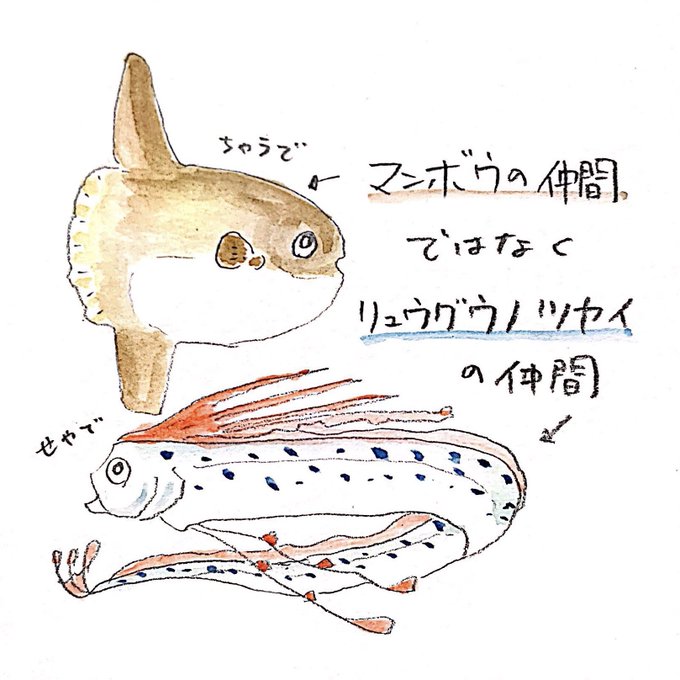 ちゃうで
マンボウの仲間
ではなく
リュウグウノツカイ
の仲間
せやで